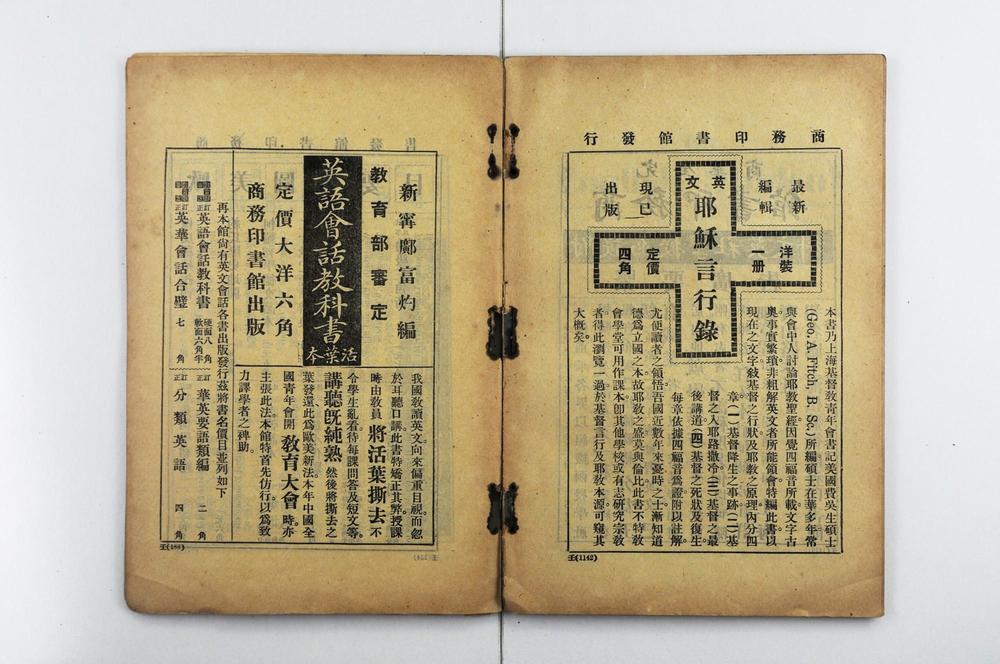 商務印書館發行
最新
編輯
英文
現已
出版
耶穌言行錄
洋裝
一册
定價
四角
本書乃上海基督敎青年會書記美國費吳生碩士
(Geo. A. Fitch, B. Sc.)所編碩士在華多年常
與會中人討論耶敎聖經因覺四福音所載文字古
奥事實繁瑣非粗解英文者所能領會特編此書以
現在之文字敍基督之行狀及耶敎之原理內分四
章(一)基督降生之事跡(二)基
督之入耶路撒冷(三)基督之最
後講道(四)基督之死狀及復生。
每章依據四福音爲證附以註解
尤便讀者之領悟吾國近數年來憂時之士漸知道
德爲立國之本故耶敎之盛莫與倫比此書不特敎
會學堂可用作課本卽其他學校或有志研究宗敎
者得此瀏覽一過於基督言行及耶敎本源可窺其
大概矣。
壬(1142)
新寗鄺富灼編
教育部審定
英語會話教科書
活葉本
定價大洋六角
商務印書館出版
我國敎讀英文。向來偏重目視而忽
於耳聽口講。此書特矯正其弊。授課
時由敎員將活葉撕去。不
令學生亂看。待每課問答及短文等。
講聽旣純熟然後將撕去之
葉發還。此爲歐美新法。本年中國全
國青年會開教育大會時。亦
主張此法。本館特首先仿行。以爲致
力譯學者之礎助。
再本館尙有英文會話各書出版發行茲將書名價目並列如下
英語會話教科書 硬面八角 軟面六角半
英華會話合璧 七角
訂正 華英要語類編 二角
訂正 分類英語 四角
壬(188)